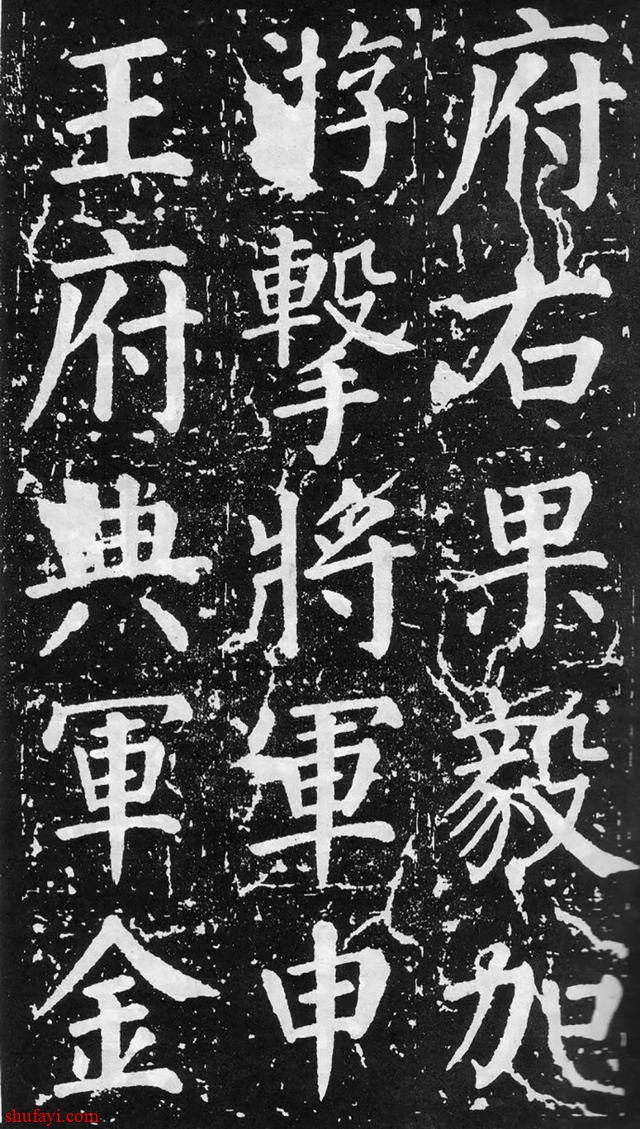 府右果毅加
游擊將軍申
王府典軍金
shufayi.com